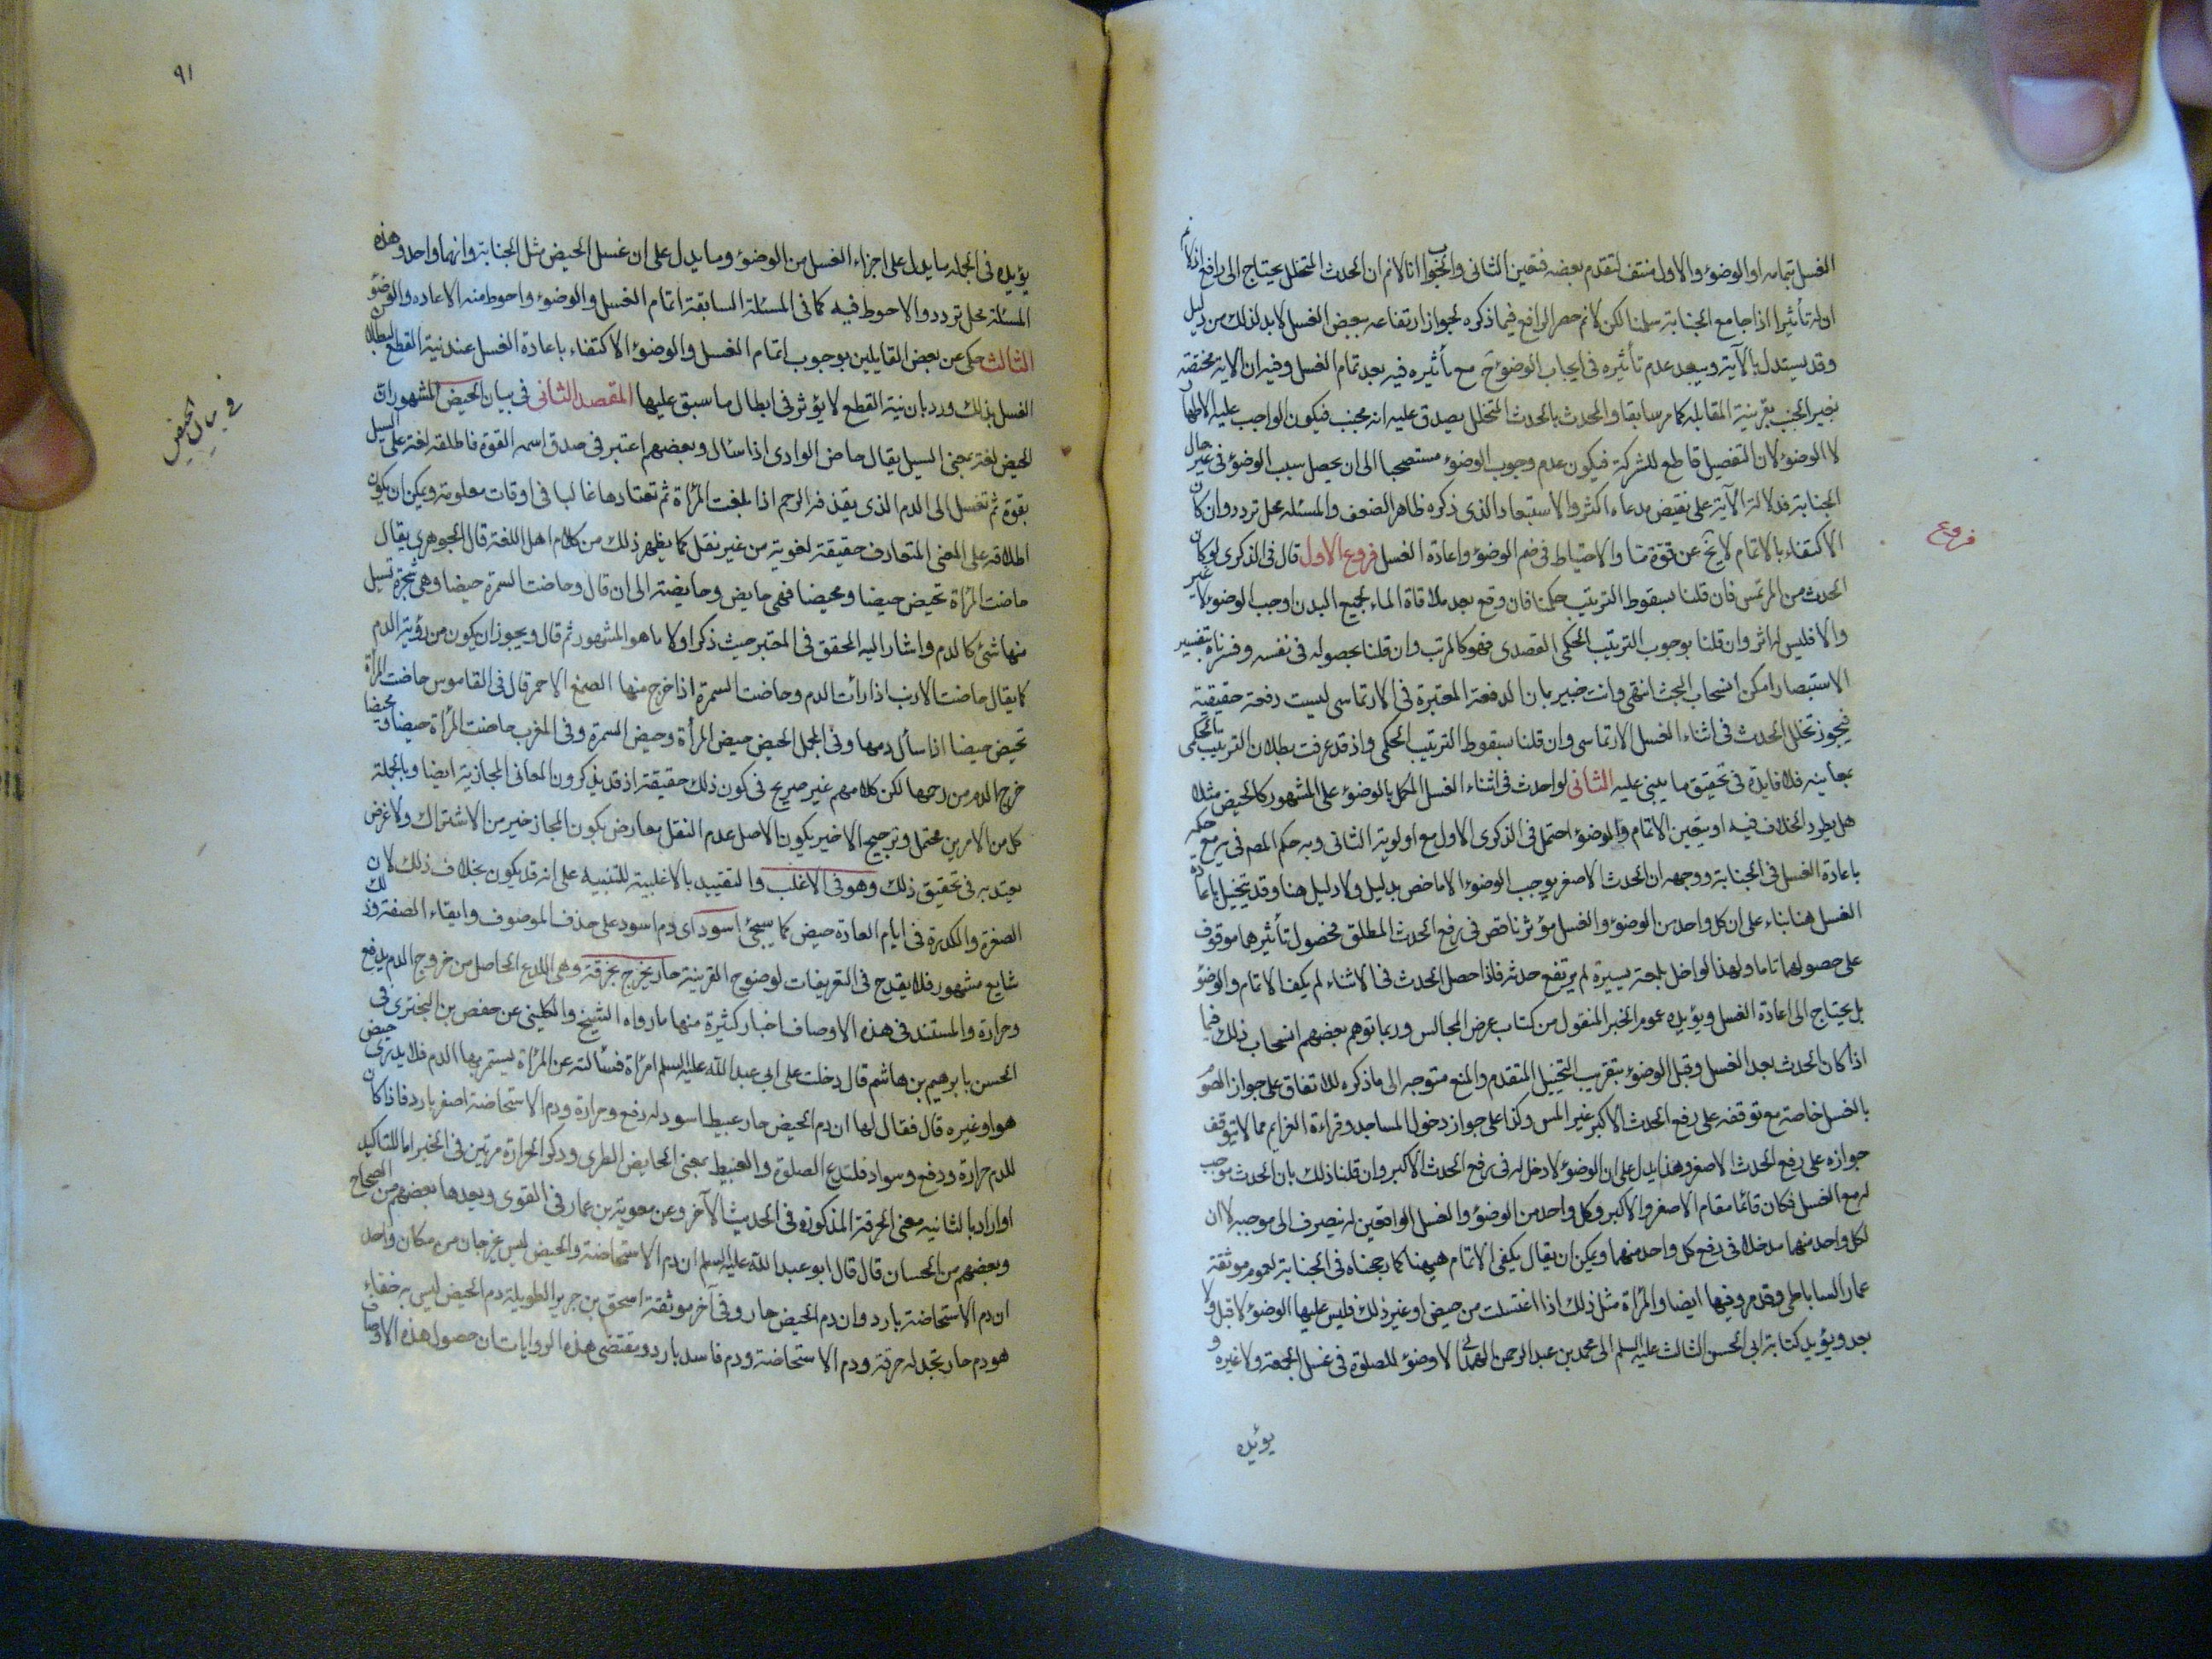 الغسل بتمامه او الوضوء والاول منتف لتقدم بعضه فتعين الثانى والجواب انا لانم ان الحدث المتخلل يحتاج الى رافع اذ لانم
ان له تأثيرا اذا جامع الجنابة سلمنا لكن لانم حصر الرافع فيما ذكره لجواز ارتفاعه ببعض الغسل لابد لذلك من دليل
وقد يستدل بالآية ويبعد عدم تأثيره فى ايجاب الوضوء ح مع تأثيره فيه بعد تمام الغسل وفيه ان الاية مختصة
بغير الجنب بقرينة المقابله كما مر سابقا والمحدث بالحدث المتخلل يصدق عليه انه مجنب فيكون الواجب عليه الاطهار
لا الوضوء لان التفصيل قاطع للشركة فيكون عدم وجوب الوضوء مستصحبا الى ان يحصل سبب الوضوء فى غير حال
الجنابة فدلالة الآية على نقيض مدعاه اكثر والاستبعاد الذى ذكره ظاهر الضعف والمسئله محل تردد وان كان
الاكتفاء بالاتمام لا يخ عن قوة ما والاحتياط فى ضم الوضوء واعادة الغسل فروع الاول قال فى الذكرى لو كان
فروع
الحدث من المرتمس فان قلنا بسقوط الترتيب حكما فان وقع بعد ملاقاة الماء لجميع البدن اوجب الوضوء لا غير
والا فليس له اثر وان قلنا بوجوب الترتيب الحكمى القصدى فهو كالمرتب وان قلنا بحصوله فى نفسه وفسرناه بتفسير
الاستبصار امكن انسحاب البحث انتهى وانت خبير بان الدفعة المعتبرة فى الارتماسى ليست دفعة حقيقية
فيجوز تخلل الحدث فى اثناء الغسل الارتماسى وان قلنا بسقوط الترتيب الحكمى واذ قد عرفت بطلان الترتيب الحكمى
بمعانيه فلا فايدة فى تحقيق ما يبنى عليه الثانى لو احدث فى اثناء الغسل المكمل بالوضوء على المشهور كالحيض مثلا
هل يطرد الخلاف فيه او يتعين الاتمام والوضوء احتمل فى الذكرى الاول مع اولوية الثانى وبه حكم المصم فى ير مع حكمه
باعادة الغسل فى الجنابة ووجهه ان الحدث الاصغر يوجب الوضوء الا ما خص بدليل ولا دليل هنا وقد يتخيل باعادة
الغسل هنا بناء على ان كل واحد من الوضوء والغسل مؤثر ناقص فى رفع الحدث المطلق فحصول تأثيرهما موقوف
على حصولهما تاما ولهذا لو اخل بلمعة يسيرة لم يرتفع حدثه فاذا حصل الحدث فى الاثناء لم يكف الاتمام والوضوء
بل يحتاج الى اعادة الغسل ويؤيده عموم الخبر المنقول من كتاب عرض المجالس وربما توهم بعضهم انسحاب ذلك فيما
اذا كان الحدث بعد الغسل وقبل الوضوء بتقريب التخييل المتقدم والمنع متوجه الى ما ذكره للاتفاق على جواز الصوم
بالغسل خاصة مع توقفه على رفع الحدث الاكبر غير المس وكذا على جواز دخول المساجد وقراءة العزايم مما لا يتوقف
جوازه على رفع الحدث الاصغر وهذا يدل على ان الوضوء لا دخل له فى رفع الحدث الاكبر وان قلنا ذلك بان الحدث موجب
له مع الغسل فكان قائما مقام الاصغر والاكبر وكل واحد من الوضوء والغسل الواقعين له ينصرف الى موجبه لا ان
لكل واحد منهما مدخلا فى رفع كل واحد منهما ويمكن ان يقال يكفى الاتمام هيهنا كما رجحناه فى الجنابة لعموم موثقة
عمار الساباطى وقد مر وفيها ايضا والمرأة مثل ذلك اذا اغتسلت من حيض او غير ذلك فليس عليها الوضوء لا قبل ولا
بعد ويؤيد كتابة ابى الحسن الثالث عليه السلم الى محمد بن عبد الرحمن الهمدانى لا وضوء للصلوة فى غسل الجمعة ولا غيره و
يؤيده
٩١
يؤيده فى الجمله ما يدل على اجزاء الغسل من الوضوء وما يدل على ان غسل الحيض مثل الجنابة وانهما واحد وهذه
المسئلة محل تردد والاحوط فيه كما فى المسئلة السابقة اتمام الغسل والوضوء واحوط منه الاعاده والوضوء
الثالث حكى عن بعض القايلين بوجوب اتمام الغسل والوضوء الاكتفاء باعادة الغسل عند نية القطع لبطلان
الغسل بذلك ورد بان نية القطع لا يؤثر فى ابطال ما سبق عليها المقصد الثانى فى بيان الحيض المشهور ان
فى بيان الحيض
الحيض لغة بمعنى السيل يقال حاض الوادى اذا سال وبعضهم اعتبر فى صدق اسمه القوة فاطلقه لغة على السيل
بقوة ثم تغسل الى الدم الذى يقذفه الرحم اذا بلغت المرأة ثم تعتادها غالبا فى اوقات معلومة ويمكن ان يكون
اطلاقه على المعنى المتعارف حقيقة لغوية من غير نقل كما يظهر ذلك من كلام اهل اللغة قال الجوهرى يقال
حاضت المرأة تحيض حيضا ومحيضا فهى حايض وحايضة الى ان قال وحاضت السمرة حيضا وهى شجرة تسيل
منها شئ كالدم واشار اليه المحقق فى المعتبر حيث ذكر اولا ما هو المشهور ثم قال ويجوز ان يكون من رؤية الدم
كما يقال حاضت الارنب اذا رأت الدم وحاضت السمرة اذا خرج منها الصمغ الاحمر قال فى القاموس حاضت المرأة
تحيض حيضا اذا سال دمها وفى المجمل الحيض حيض المرأة وحيض السمرة وفى المغرب حاضت المرأة حيضا ومحيضا
خرج الدم من رحمها لكن كلامهم غير صريح فى كون ذلك حقيقة اذ قد يذكرون المعانى المجازية ايضا وبالجملة
كل من الامرين محتمل وترجيح الاخير بكون الاصل عدم النقل معارض بكون المجاز خير من الاشتراك ولا غرض
يعتد به فى تحقيق ذلك وهو فى الاغلب والتقييد بالاغلبية للتنبيه على انه قد يكون بخلاف ذلك لان
الصفرة والكدرة فى ايام العادة حيض كما سيجئ اسود اى دم اسود على حذف الموصوف وابقاء الصفة وذلك
شايع مشهور فلا يقدح فى التعريفات لوضوح القرينة حار يخرج بحرقة وهى اللذع الحاصل من خروج الدم بدفع
وحرارة والمستند فى هذه الاوصاف اخبار كثيرة منها ما رواه الشيخ والكلينى عن حفص بن البخترى فى
الحسن بابرهيم بن هاشم قال دخلت على ابى عبد الله عليه السلم امرأة فسألته عن المرأة يستمر بها الدم فلا يدرى حيض
هو او غيره قال فقال لها ان دم الحيض حار عبيط اسود له دفع وحرارة ودم الاستحاضة اصفر بارد فاذا كان
للدم حرارة ودفع وسواد فلتدع الصلوة والعبيط بمعنى الخالص الطرى وذكر الحرارة مرتين فى الخبر اما للتاكيد
او اراد بالثانيه معنى الحرقة المذكورة فى الحديث الآخر وعن معوية بن عمار فى القوى ويعدها بعضهم من الصحاح
وبعضهم من الحسان قال قال ابو عبد الله عليه السلم ان دم الاستحاضة والحيض ليس يخرجان من مكان واحد
ان دم الاستحاضة بارد وان دم الحيض حار وفى آخر موثقة اسحق بن جرير الطويلة دم الحيض ليس به خفاء
هو دم حار تجد له حرقة ودم الاستحاضة ودم فاسد بارد ومقتضى هذه الروايات ان حصول هذه الاوصاف